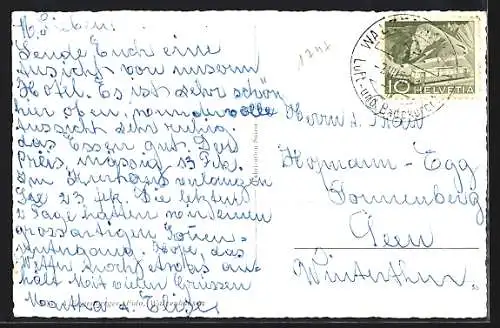 M. Lieben!
Sende Euch eine
Ansicht von unserm
Hotel. Es ist sehr schön
hier oben, wundervolle
Aussicht sehr ruhig.
das Essen gut. Der
Preis, mässig 13 Frk.
Im Kurhaus verlangen
Sie 23 frk. Die letzten
2 Tage hatten wir einen
grossartigen Sonnen-
untergang. Hoffe, das
Wetter noch etwas an-
hält. Mit vielen Grüssen
Martha
HELVETIA
10
Luft- und
Herrn & Frau
Hofmann-Egg
Sonnenberg
Seen
Winterthur